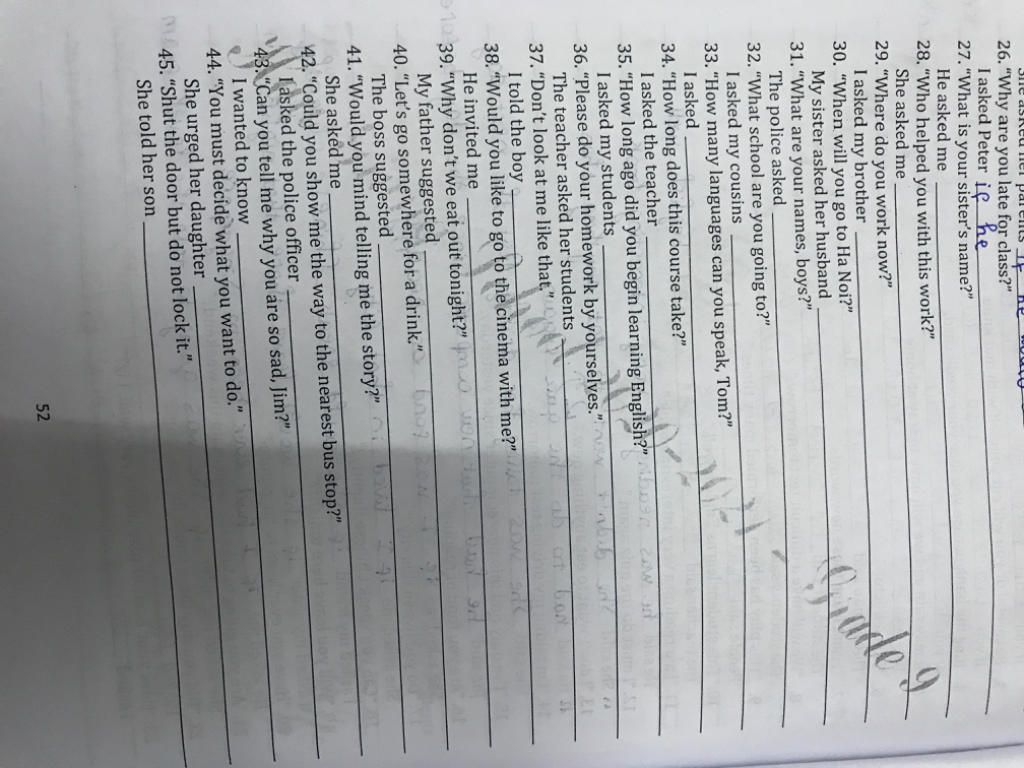 26. "Why are you late for class?"
I asked Peter if he
27. "What is your sister's name?"
He asked me
28. "Who helped you with this work?"
She asked me
29. "Where do you work now?"
I asked my brother
30. "When will you go to Ha Noi?"
My sister asked her husband
31. "What are your names, boys?"
The police asked
32. "What school are you going to?"
I asked my cousins
33. "How many languages can you speak, Tom?"
I asked
34. "How long does this course take?"
I asked the teacher
35. "How long ago did you begin learning English?"
I asked my students
36. "Please do your homework by yourselves."
The teacher asked her students
37. "Don't look at me like that."
I told the boy
38. "Would you like to go to the cinema with me?"
He invited me
39. "Why don't we eat out tonight?"
My father suggested
40. "Let's go somewhere for a drink."
The boss suggested
41. "Would you mind telling me the story?"
She asked me
42. "Could you show me the way to the nearest bus stop?"
I asked the police officer
43. "Can you tell me why you are so sad, Jim?"
I wanted to know
44. "You must decide what you want to do."
She urged her daughter
45. "Shut the door but do not lock it."
She told her son
Grade 9
52